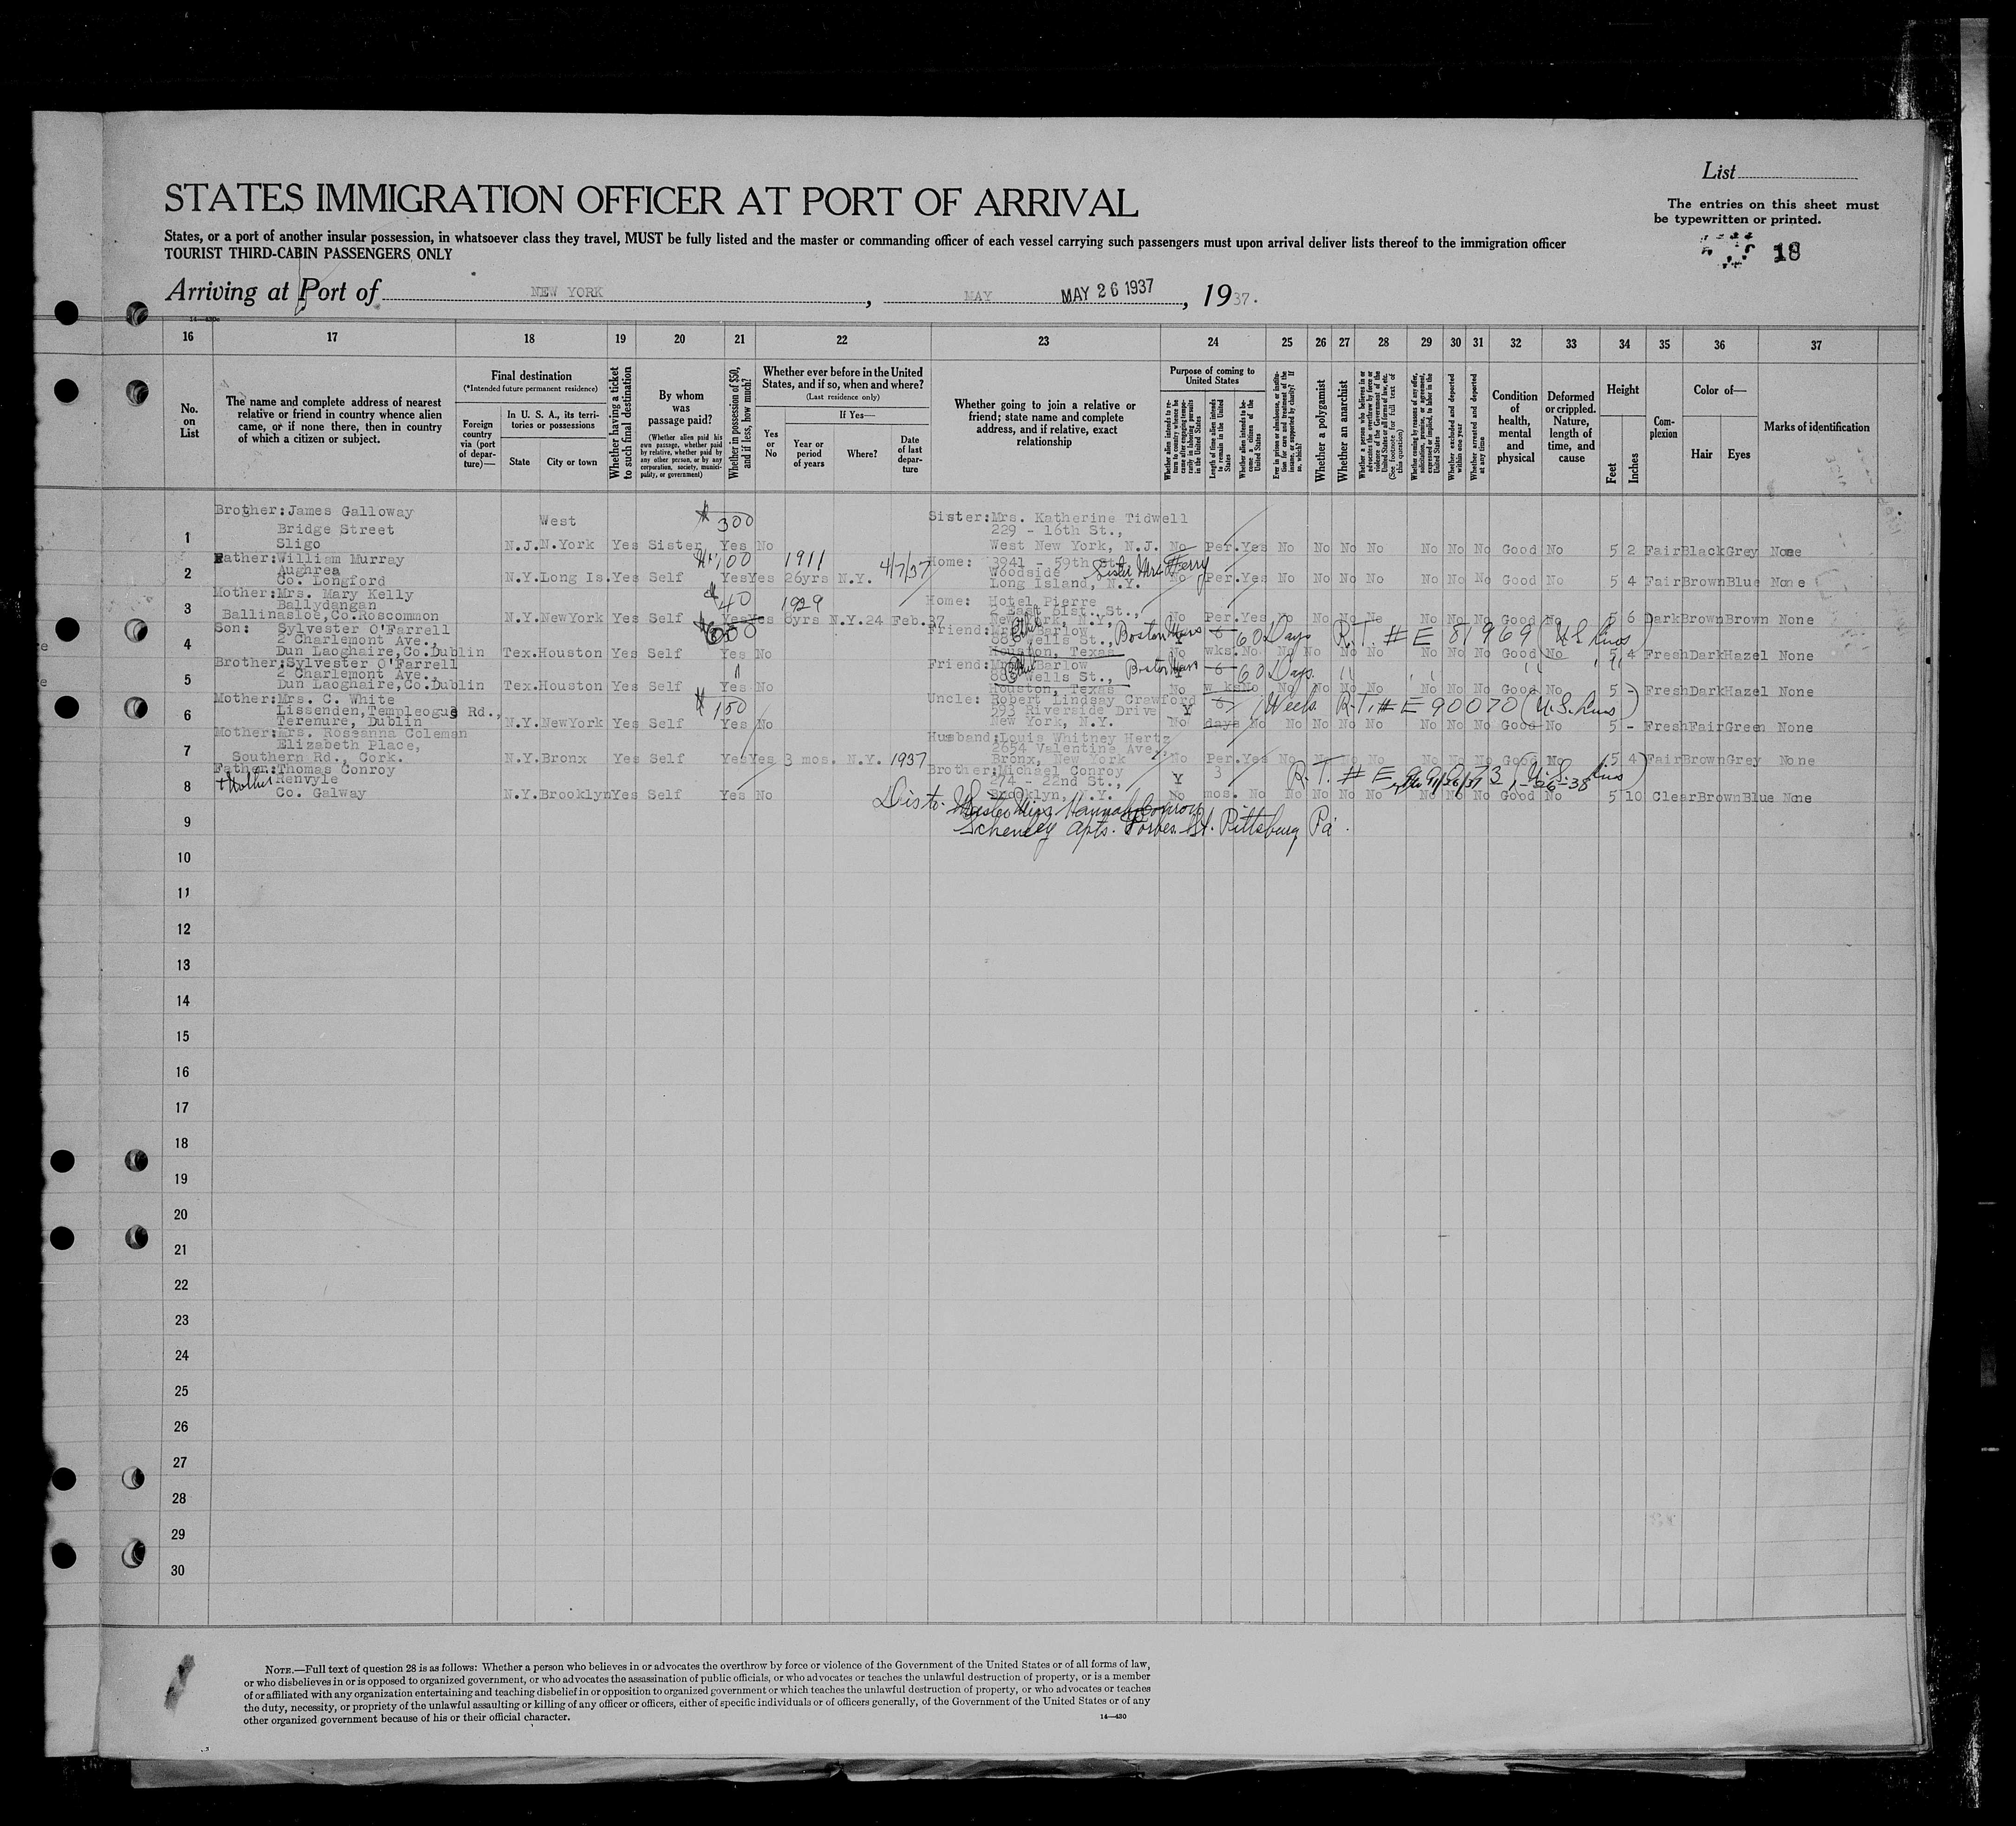 List
STATES IMMIGRATION OFFICER AT PORT OF ARRIVAL
The entries on this sheet must
be typewritten or printed.
States, or a port of another insular possession, in whatsoever class they travel, MUST be fully listed and the master or commanding officer of each vessel carrying such passengers must upon arrival deliver lists thereof to the immigration officer
TOURIST THIRD-CABIN PASSENGERS ONLY
18
Arriving at Port of NEW YORK, MAY MAY 26 1937, 1937.
16 17 18 19 20 21 22 23 24 25 26 27 28 29 30 31 32 33 34 35 36 37
No. on List
The name and complete address of nearest relative or friend in country whence alien came, or if none there, then in country of which a citizen or subject.
Final destination
(*Intended future permanent residence)
Foreign country via (port of departure)—
In U. S. A., its territories or possessions
State
City or town
Whether having a ticket to such final destination
By whom was passage paid?
(Whether alien paid his own passage, whether paid by relative, whether paid by any other person, or by any corporation, society, municipality, or government)
Whether in possession of $50, and if less, how much?
Whether ever before in the United States, and if so, when and where?
(Last residence only)
Yes or No
If Yes—
Year or period of years
Where?
Date of last departure
Whether going to join a relative or friend; state name and complete address, and if relative, exact relationship
Purpose of coming to United States
Length of time alien intends to remain in the United States
Whether alien intends to become a citizen of the United States
Whether a polygamist
Whether an anarchist
Whether excluded and deported within one year
Whether arrested and deported at any time
Condition of health, mental and physical
Deformed or crippled. Nature, length of time, and cause
Height
Feet
Inches
Complexion
Color of—
Hair
Eyes
Marks of identification
1 Brother: James Galloway
Bridge Street
Sligo
N.J. West N.York Yes Sister $300 Yes No
Sister: Mrs. Katherine Tidwell
229 - 16th St.,
West New York, N.J. No Per. Yes No No No No No No No Good No 5 2 Fair Black Grey None
2 Father: William Murray
Aughrea
Co. Longford
N.Y. Long Is. Yes Self 100 Yes Yes 1911 26yrs N.Y. 4/7/37
Home: 3941 - 59th St.
Woodside
Long Island, N.Y. No Per. Yes No No No No No No No Good No 5 4 Fair Brown Blue None
3 Mother: Mrs. Mary Kelly
Ballydangan
Ballinasloe, Co.Roscommon
N.Y. NewYork Yes Self 40 Yes 1929 8yrs N.Y. 24 Feb.37
Home: Hotel Pierre
2 East 61st. St.,
New York, N.Y. No Per. Yes No No No No No No No Good No 5 6 Dark Brown Brown None
4 Son: Sylvester O'Farrell
2 Charlemont Ave.,
Dun Laoghaire, Co.Dublin
Tex. Houston Yes Self Yes No
Friend: Mrs. Barlow
Wells St., Boston Mass
Houston, Texas
60 Days R.T. # E 81969 (U.S. Lines)
No wks. No No No No No No No No Good No 5 4 Fresh Dark Hazel None
5 Brother: Sylvester O'Farrell
2 Charlemont Ave.,
Dun Laoghaire, Co.Dublin
Tex. Houston Yes Self " Yes No
Friend: Barlow
Wells St., Boston Mass
Houston, Texas
60 Days " "
No wks No No No No No No No No Good No 5 - Fresh Dark Hazel None
6 Mother: Mrs. C. White
Lissenden, Templeogue Rd.,
Terenure, Dublin
N.Y. NewYork Yes Self $150 Yes No
Uncle: Robert Lindsay Crawford
593 Riverside Drive
New York, N.Y.
Y 6 Weeks R.T. # E 90070 (U.S. Lines)
No days No No No No No No No No Good No 5 - Fresh Fair Green None
7 Mother: Mrs. Roseanna Coleman
Elizabeth Place,
Southern Rd., Cork.
N.Y. Bronx Yes Self Yes Yes 3 mos. N.Y. 1937
Husband: Louis Whitney Hertz
2654 Valentine Ave.,
Bronx, New York No Per. Yes No No No No No No No Good No 5 4 Fair Brown Grey None
8 Father: Thomas Conroy
+ Mother Renvyle
Co. Galway
N.Y. Brooklyn Yes Self Yes No
Brother: Michael Conroy
274 - 22nd St.,
Brooklyn, N.Y.
Y 3 R.T. # E
No mos. No No No No No No No No Good No 5 10 Clear Brown Blue None
9 Miss Hannah Conroy
Schenley Apts. Forbes St. Pittsburg Pa.
10
11
12
13
14
15
16
17
18
19
20
21
22
23
24
25
26
27
28
29
30
NOTE.—Full text of question 28 is as follows: Whether a person who believes in or advocates the overthrow by force or violence of the Government of the United States or of all forms of law,
or who disbelieves in or is opposed to organized government, or who advocates the assassination of public officials, or who advocates or teaches the unlawful destruction of property, or is a member
of or affiliated with any organization entertaining and teaching disbelief in or opposition to organized government or which teaches the unlawful destruction of property, or who advocates or teaches
the duty, necessity, or propriety of the unlawful assaulting or killing of any officer or officers, either of specific individuals or of officers generally, of the Government of the United States or of any
other organized government because of his or their official character.
14—430